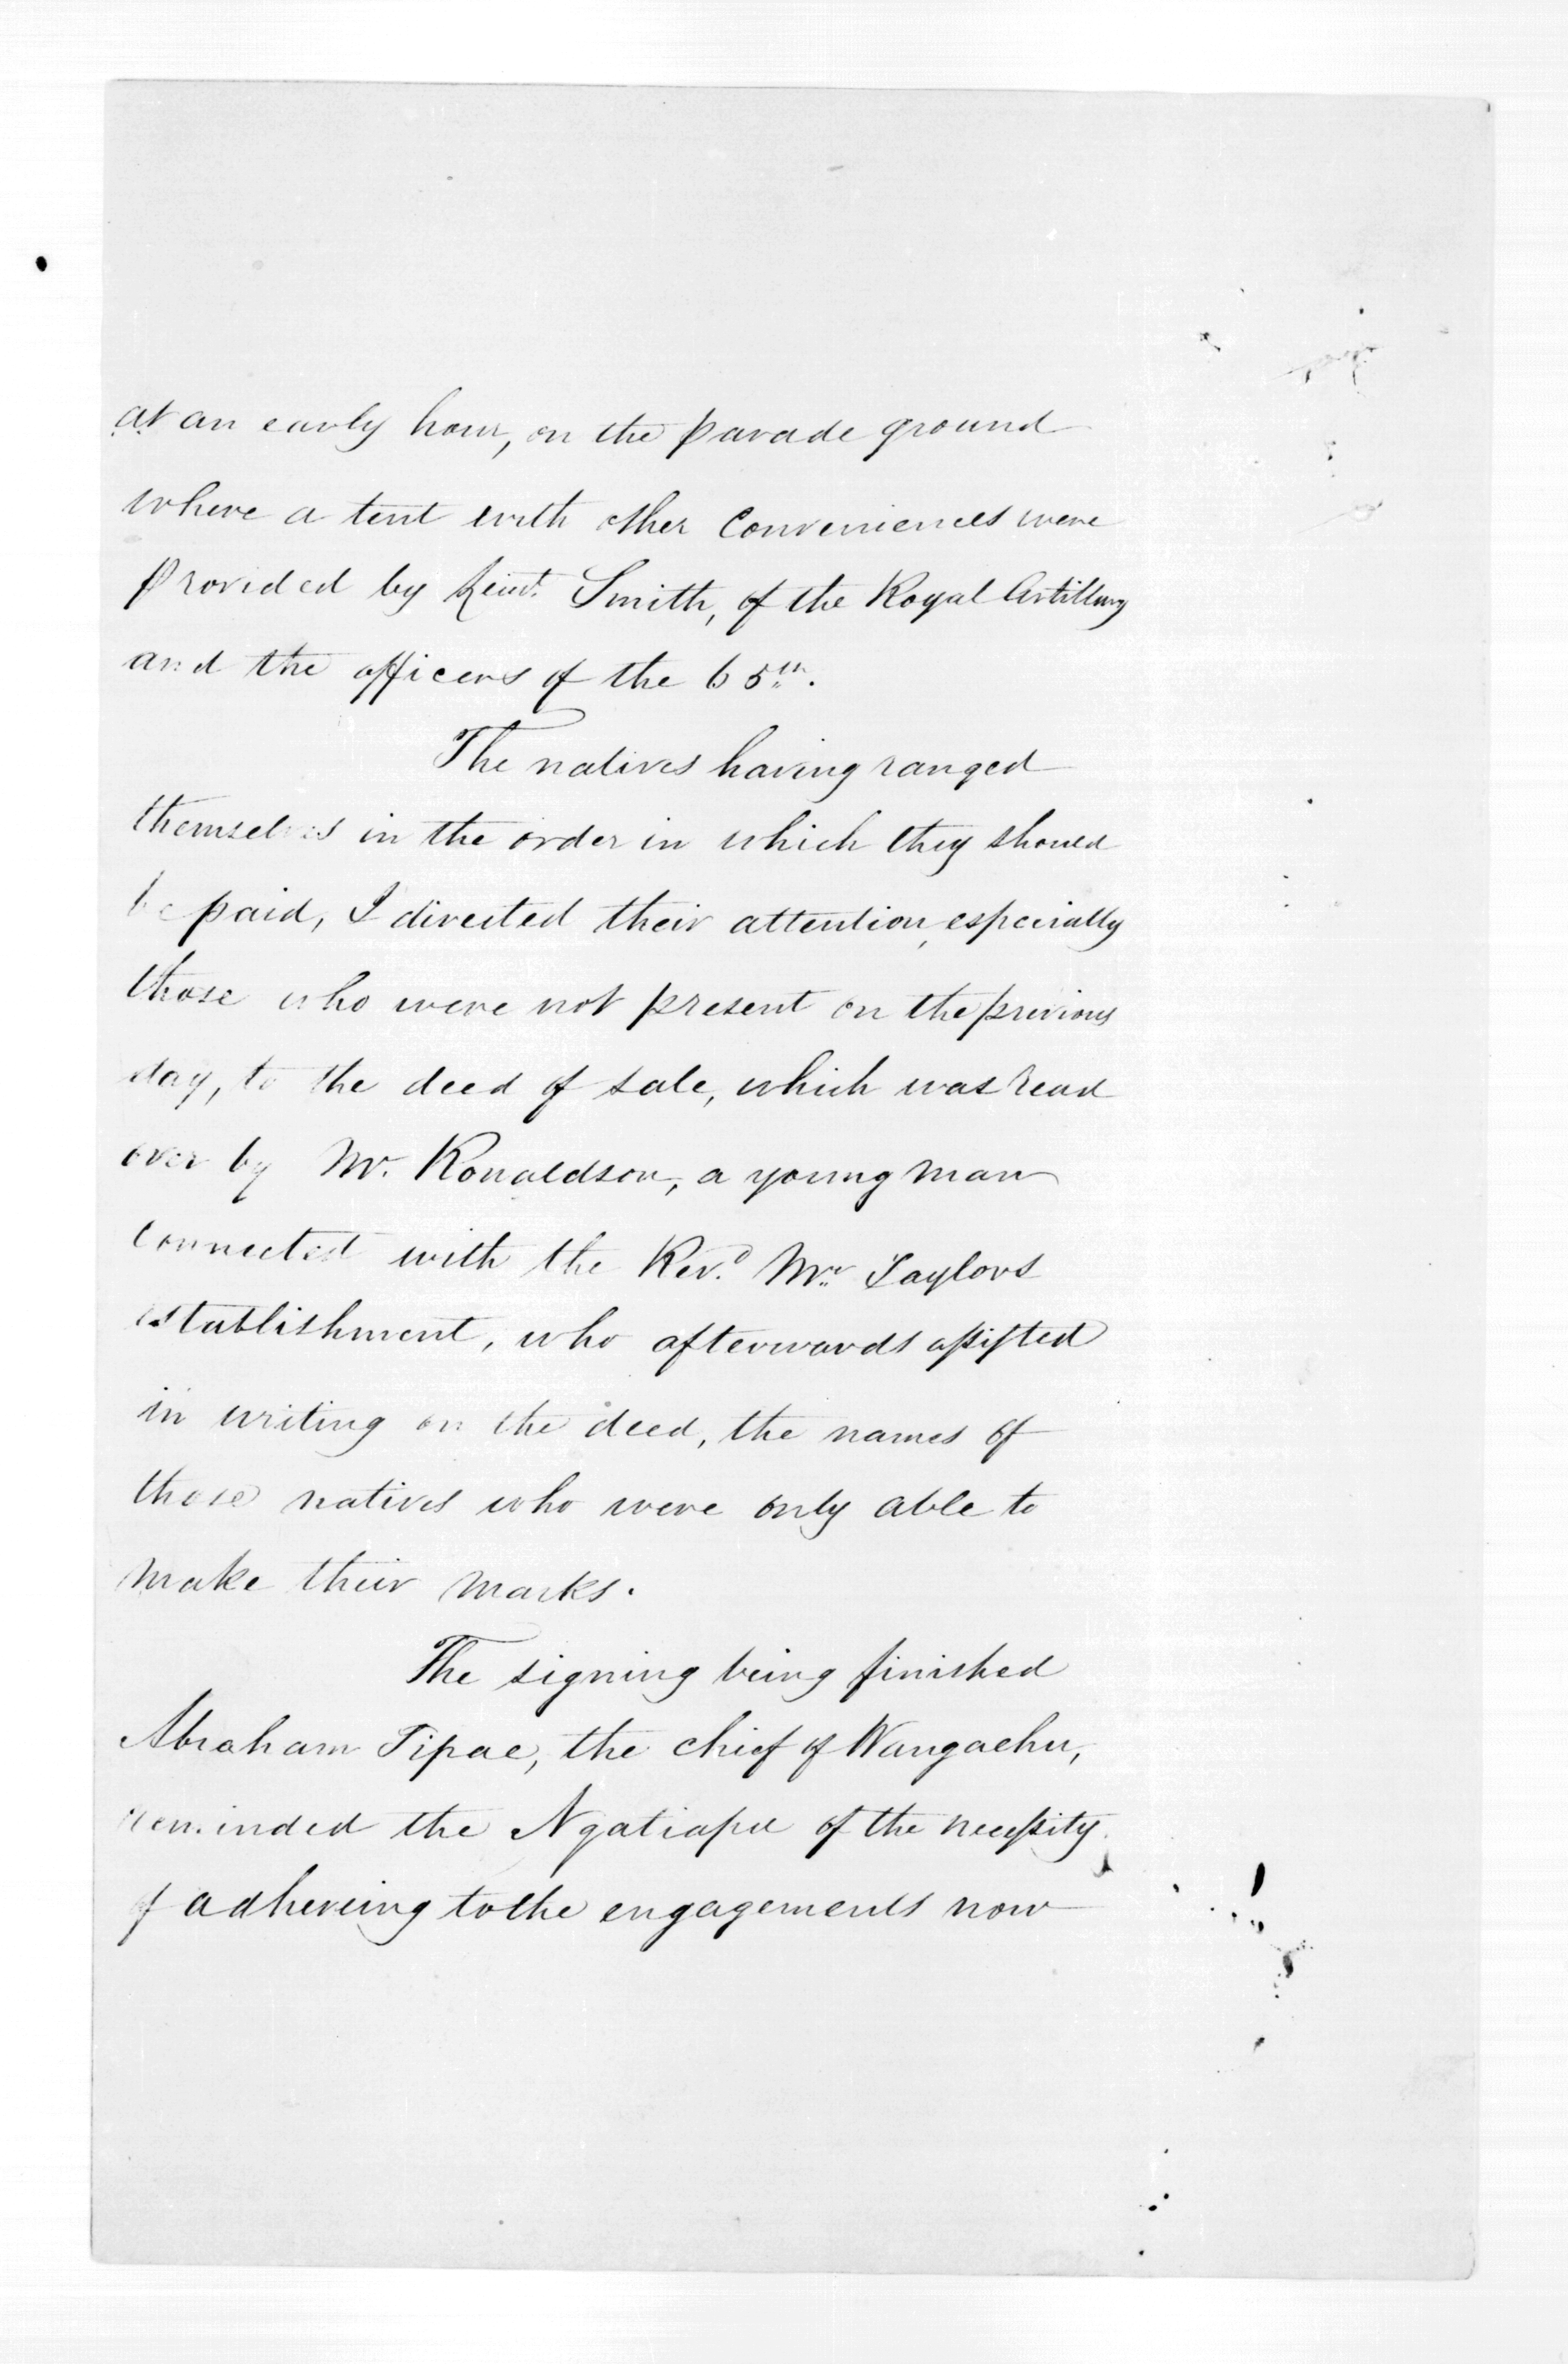 at an early hour, on the parade ground
where a tent with other conveniences were
provided by Lieut. Smith, of the Royal Artillery
and the officers of the 65th.
The natives having ranged
themselves in the order in which they should
be paid, I directed their attention, especially
those who were not present on the previous
day, to the deed of sale, which was read
over by Mr. Ronaldson, a young man
connected with the Revd. Mr. Taylors
establishment, who afterwards assisted
in writing on the deed, the names of
those natives who were only able to
make their marks.
The signing being finished
Abraham Tipae, the chief of Wangaehu,
reminded the Ngatiapa of the necessity
of adhereing to the engagements now